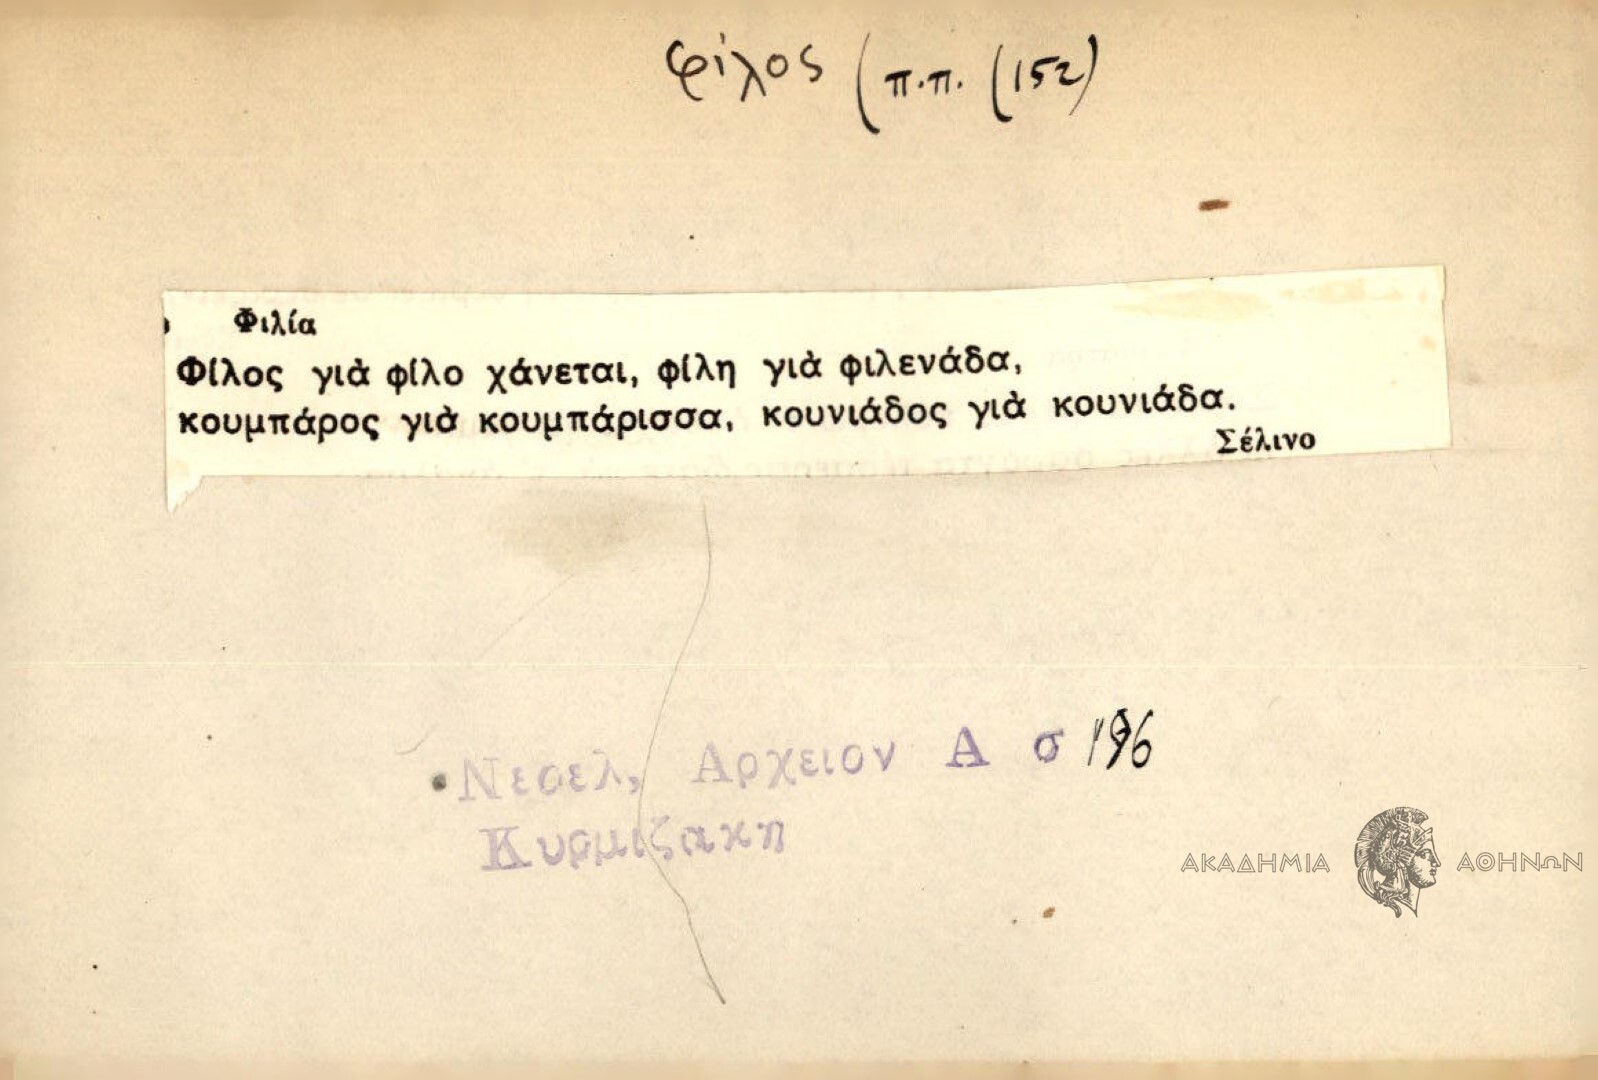 φίλος (π.π. (152)
Φιλία
Φίλος γιὰ φίλο χάνεται, φίλη γιὰ φιλενάδα,
κουμπάρος γιὰ κουμπάρισσα, κουνιάδος γιὰ κουνιάδα.
Σέλινο
Νεοελ, Αρχειον Α σ 196
Κυρμιζακη
ΑΚΑΔΗΜΙΑ ΑΘΗΝΩΝ